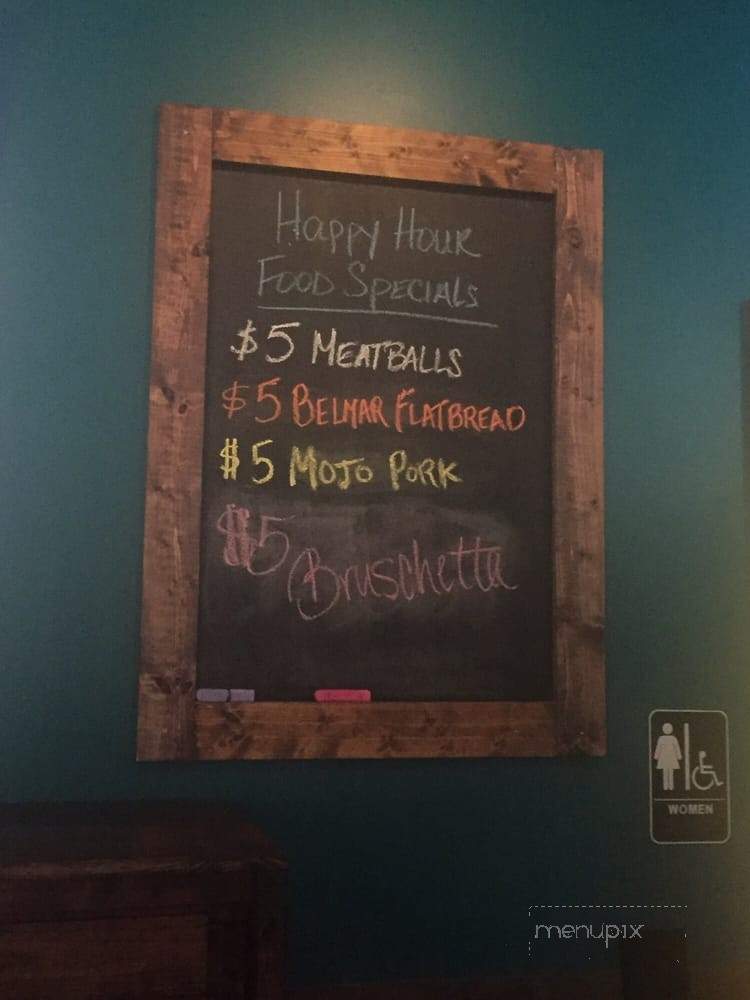 Happy Hour
Food Specials
$5 Meatballs
$5 Belmar Flatbread
$5 Mojo Pork
$5 Bruschetta
WOMEN
menupix